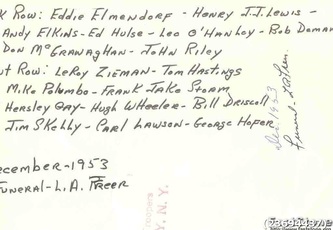 K Row: Eddie Elmendorf - Henry J.J. Lewis -
Andy Elkins - Ed Hulse - Leo O'Hanloy - Bob Doman
Don McGranaghan - John Riley
nt Row: LeRoy Zieman - Tom Hastings
Mike Palumbo - Frank Jake Storm
Hersley Gay - Hugh Wheeler - Bill Driscoll
Jim Skelly - Carl Lawson - George Hofer
December - 1953
Funeral - L.A. Freer
Dec 1953
Funeral
Troopers
Y, N.Y.